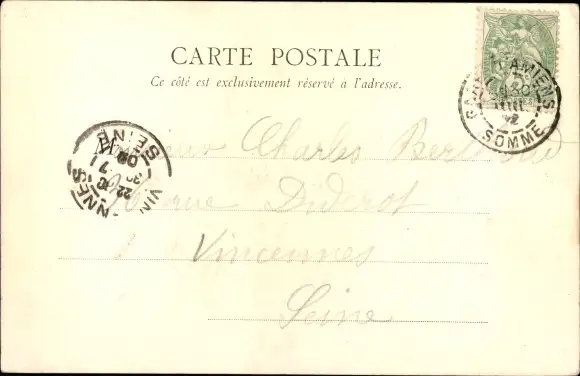 CARTE POSTALE
Ce côté est exclusivement réservé à l'adresse.
GARE D'AMIENS
SOMME
VINCENNES
SEINE
Charles
rue Diderot
Vincennes
Seine